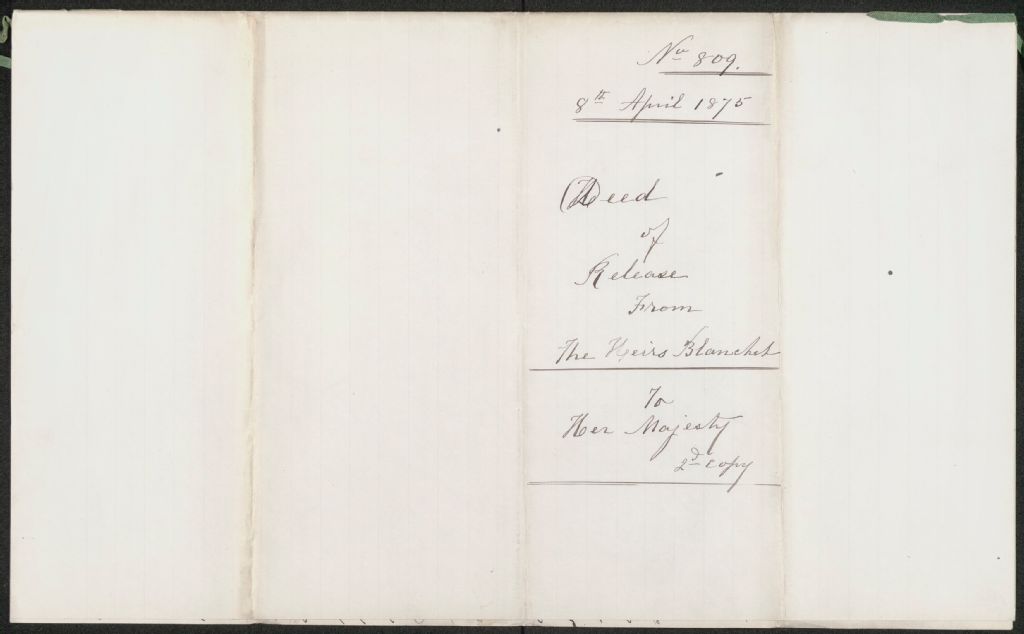 No 809.
8th April 1875
Deed
of
Release
From
The Heirs Blanchet
To
Her Majesty
2d Copy